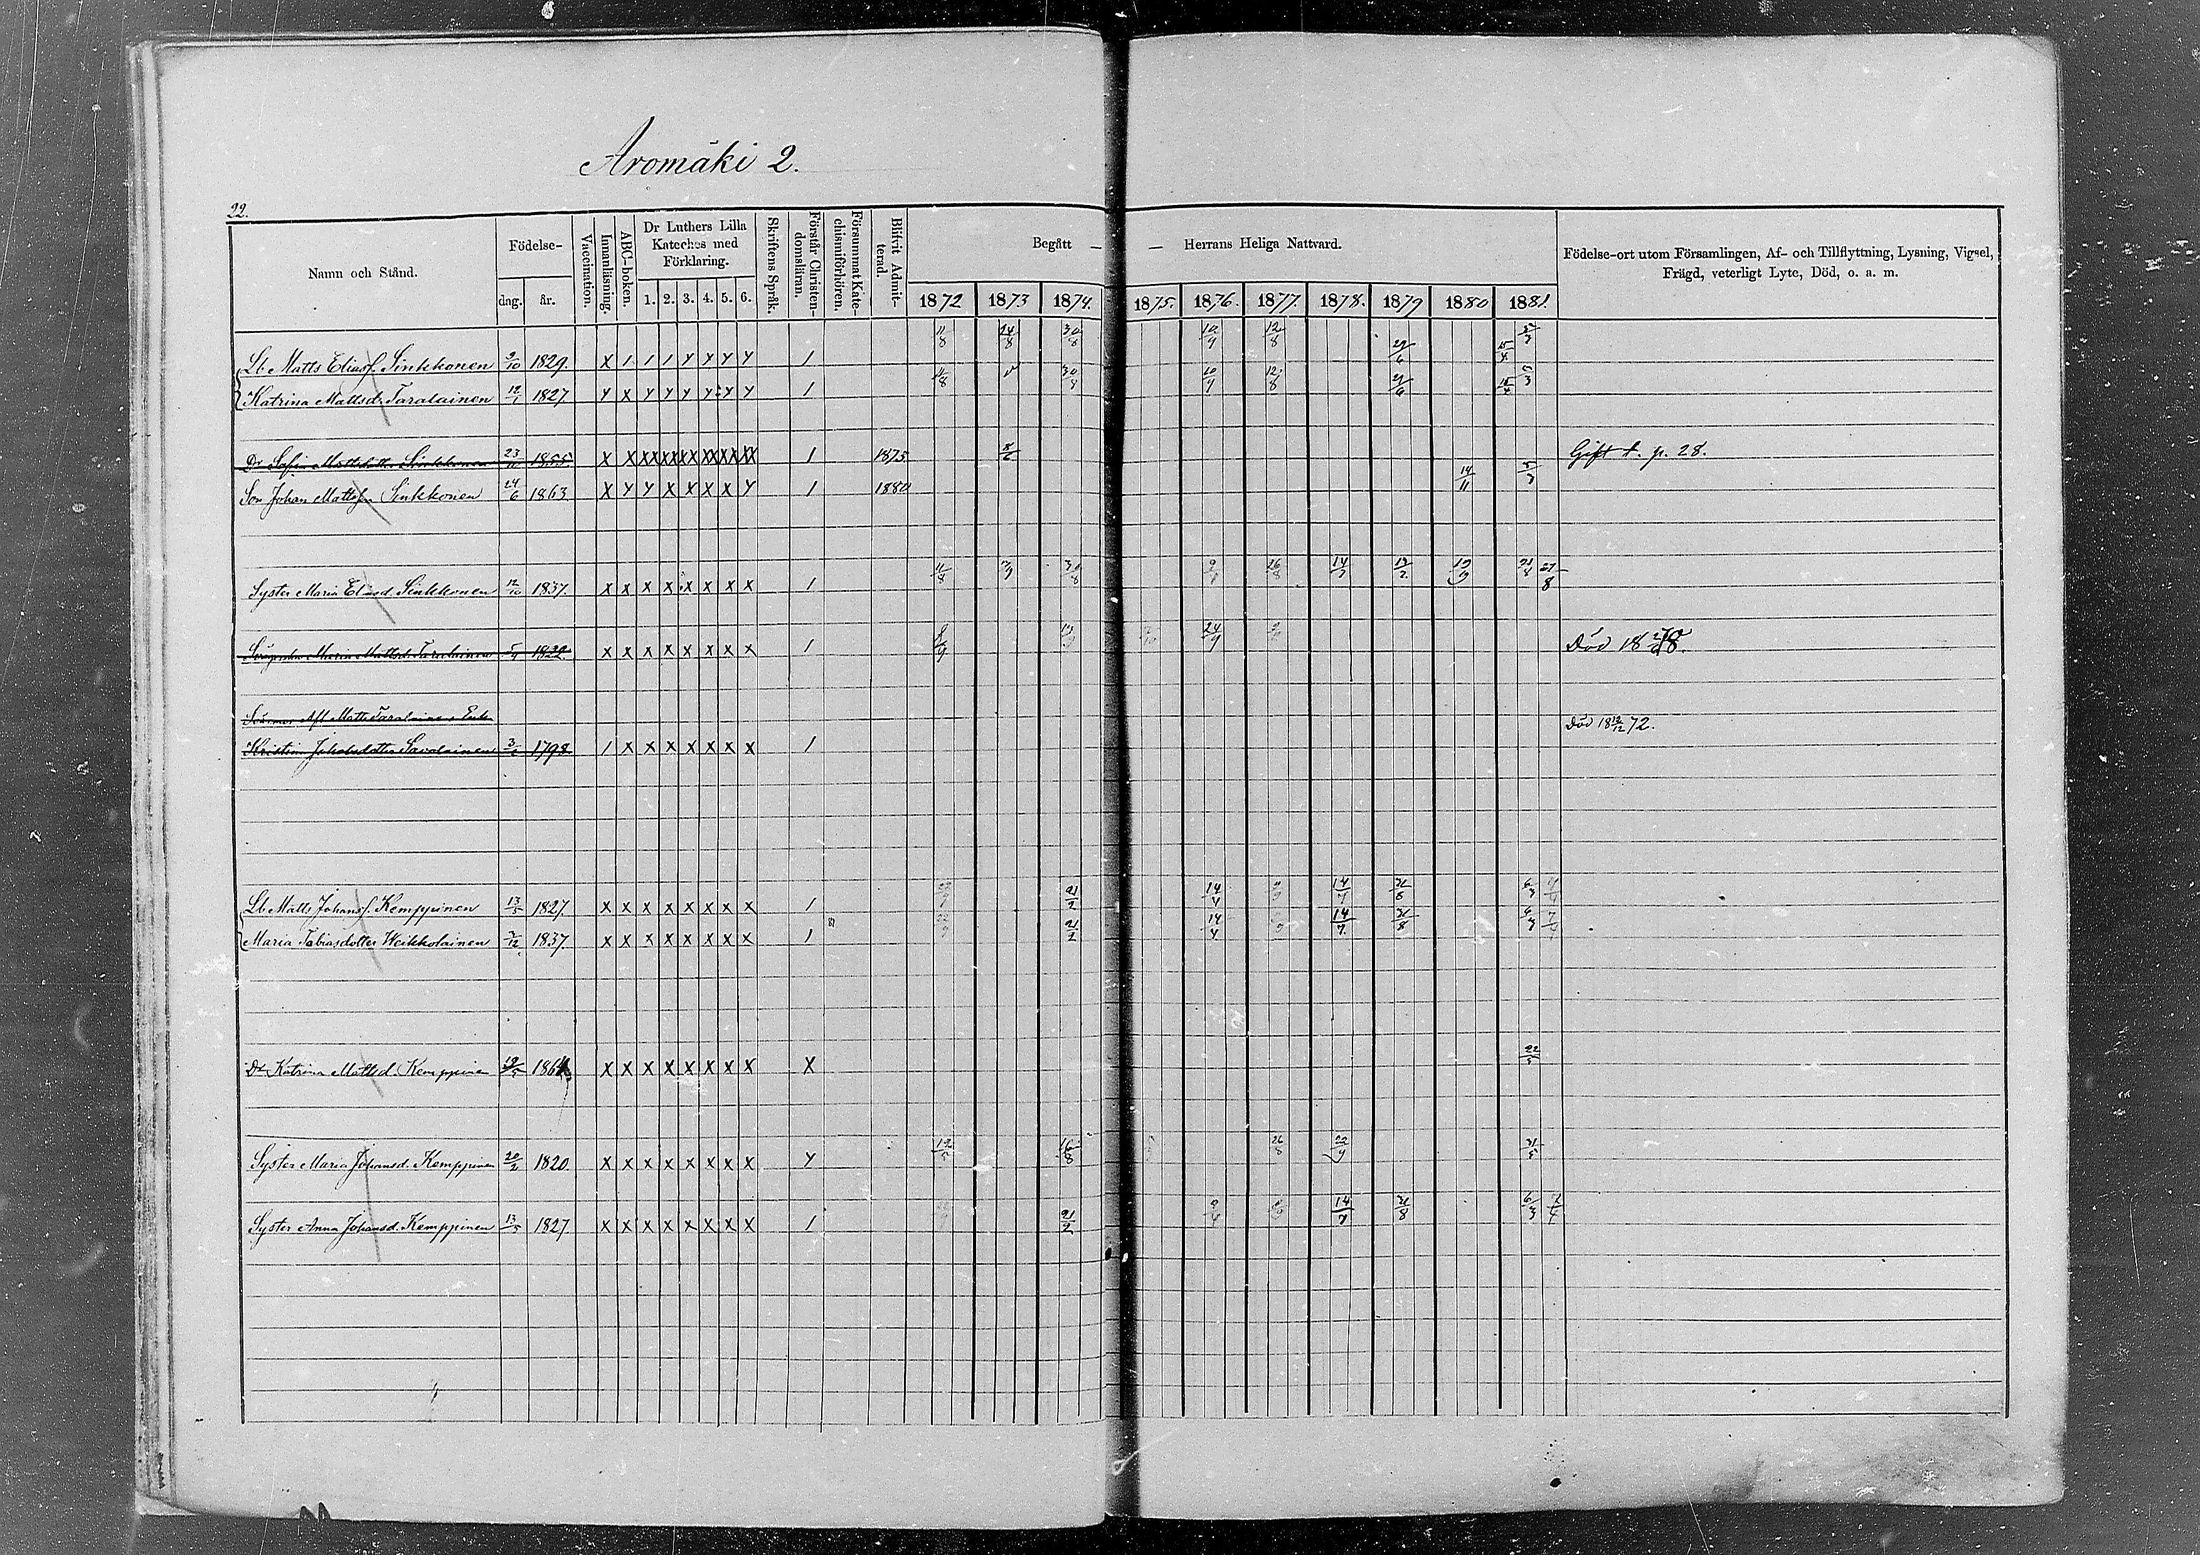 Aromäki 2.
22.
Namn och Stånd.
Födelse-
dag.
år.
Vaccination.
Innanläsning.
ABC-boken.
Dr Luthers Lilla
Kateches med
Förklaring.
1. 2. 3. 4. 5. 6.
Skriftens Språk.
Förstår Christen-
domsläran.
Försummat Kate-
chismiförhören.
Blifvit Admit-
terad.
Begått — — Herrans Heliga Nattvard.
1872 1873 1874. 1875. 1876. 1877. 1878. 1879 1880 1881.
Födelse-ort utom Församlingen, Af- och Tillflyttning, Lysning, Vigsel,
Frägd, veterligt Lyte, Död, o. a. m.
Lb. Matts Eliasf. Sinkkonen 9/10 1829. X 1 1 1 Y Y Y Y 1 11/8 24/8 30/8 10/9 12/8
Katrina Mattsd. Taralainen 1827. Y X Y Y Y Y Y Y 1 11/8 30/8 10/9 12/8
Dr Sofia Mattsdotter Sinkkonen 23 1855. X X XX XX XX XX XX XX 1 1873 Gift t. p. 28.
Son Johan Mattsson Sinkkonen 24/6 1863 X Y Y X X X X Y 1 1880 14/11
Syster Maria Eliasd. Sinkkonen 12/10 1837. X X X X X X X X 1 11/8 30/8 26/8 14/7
Maria Mattsd. Taralainen 1822. X X X X X X X X 1 8/9 24/9 Död 18 78.
Afl Matts Taralainens Enka
Kristina Jakobsdotter Savolainen 1798. 1 X X X X X X X 1 Död 18 19/12 72.
Lb Matts Johansf. Kemppinen 13/5 1827. X X X X X X X X 1 21/2 14/4 14/7 31/8 6/3
Maria Tobiasdotter Weikkolainen 1837. X X X X X X X X 1 21/2 14/4 14/7. 31/8 6/3
Dr Katrina Mattsd. Kemppinen 19/5 X X X X X X X X X 22/5
Syster Maria Johansd. Kemppinen 20/2 1820. X X X X X X X X Y 12/5 16/8 26/8 31/5
Syster Anna Johansd. Kemppinen 13/5 1827. X X X X X X X X 1 21/2 9/4 14/7 31/8 6/3 7/4